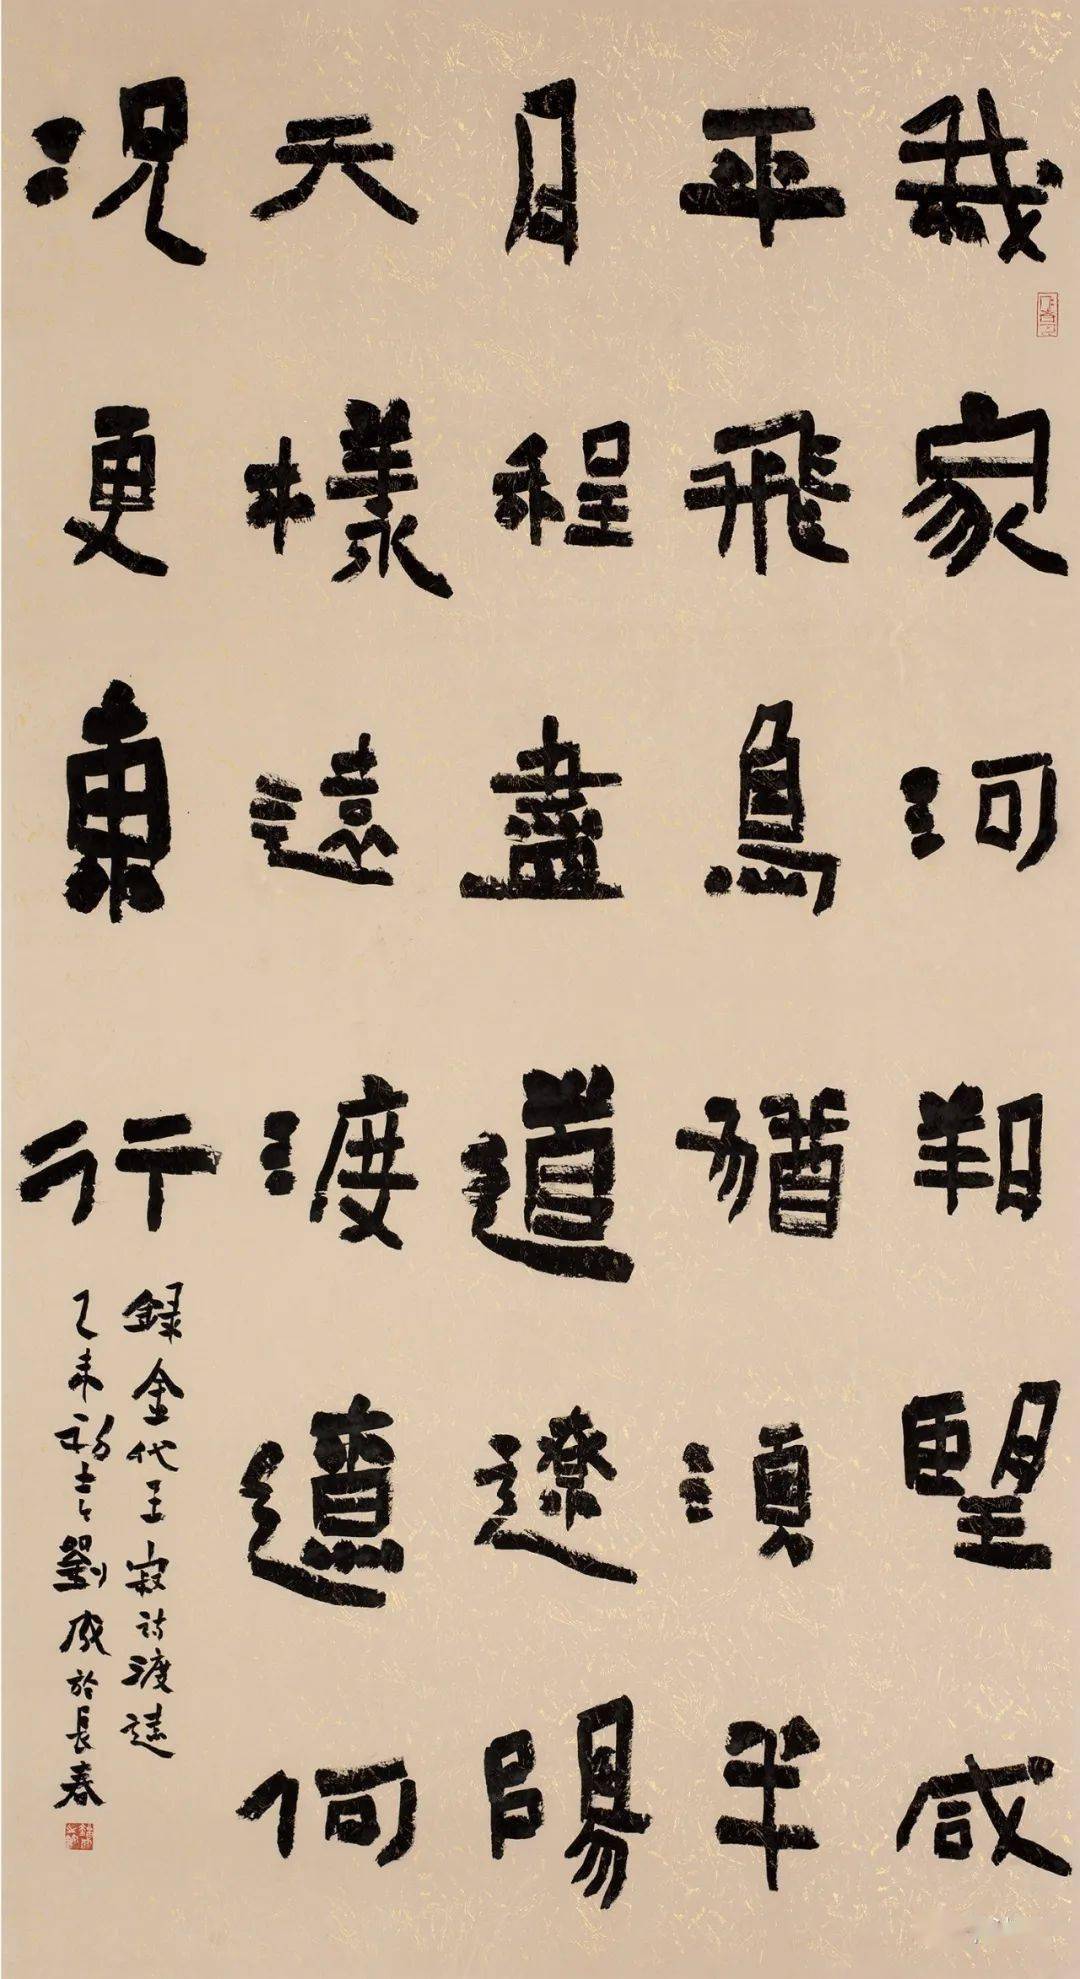 我家河朔望咸
平飛鳥猶須半
月程盡道遼陽
天樣遠渡遼何
况更東行
録金代王寂詩渡遼
乙未初劉成於長春